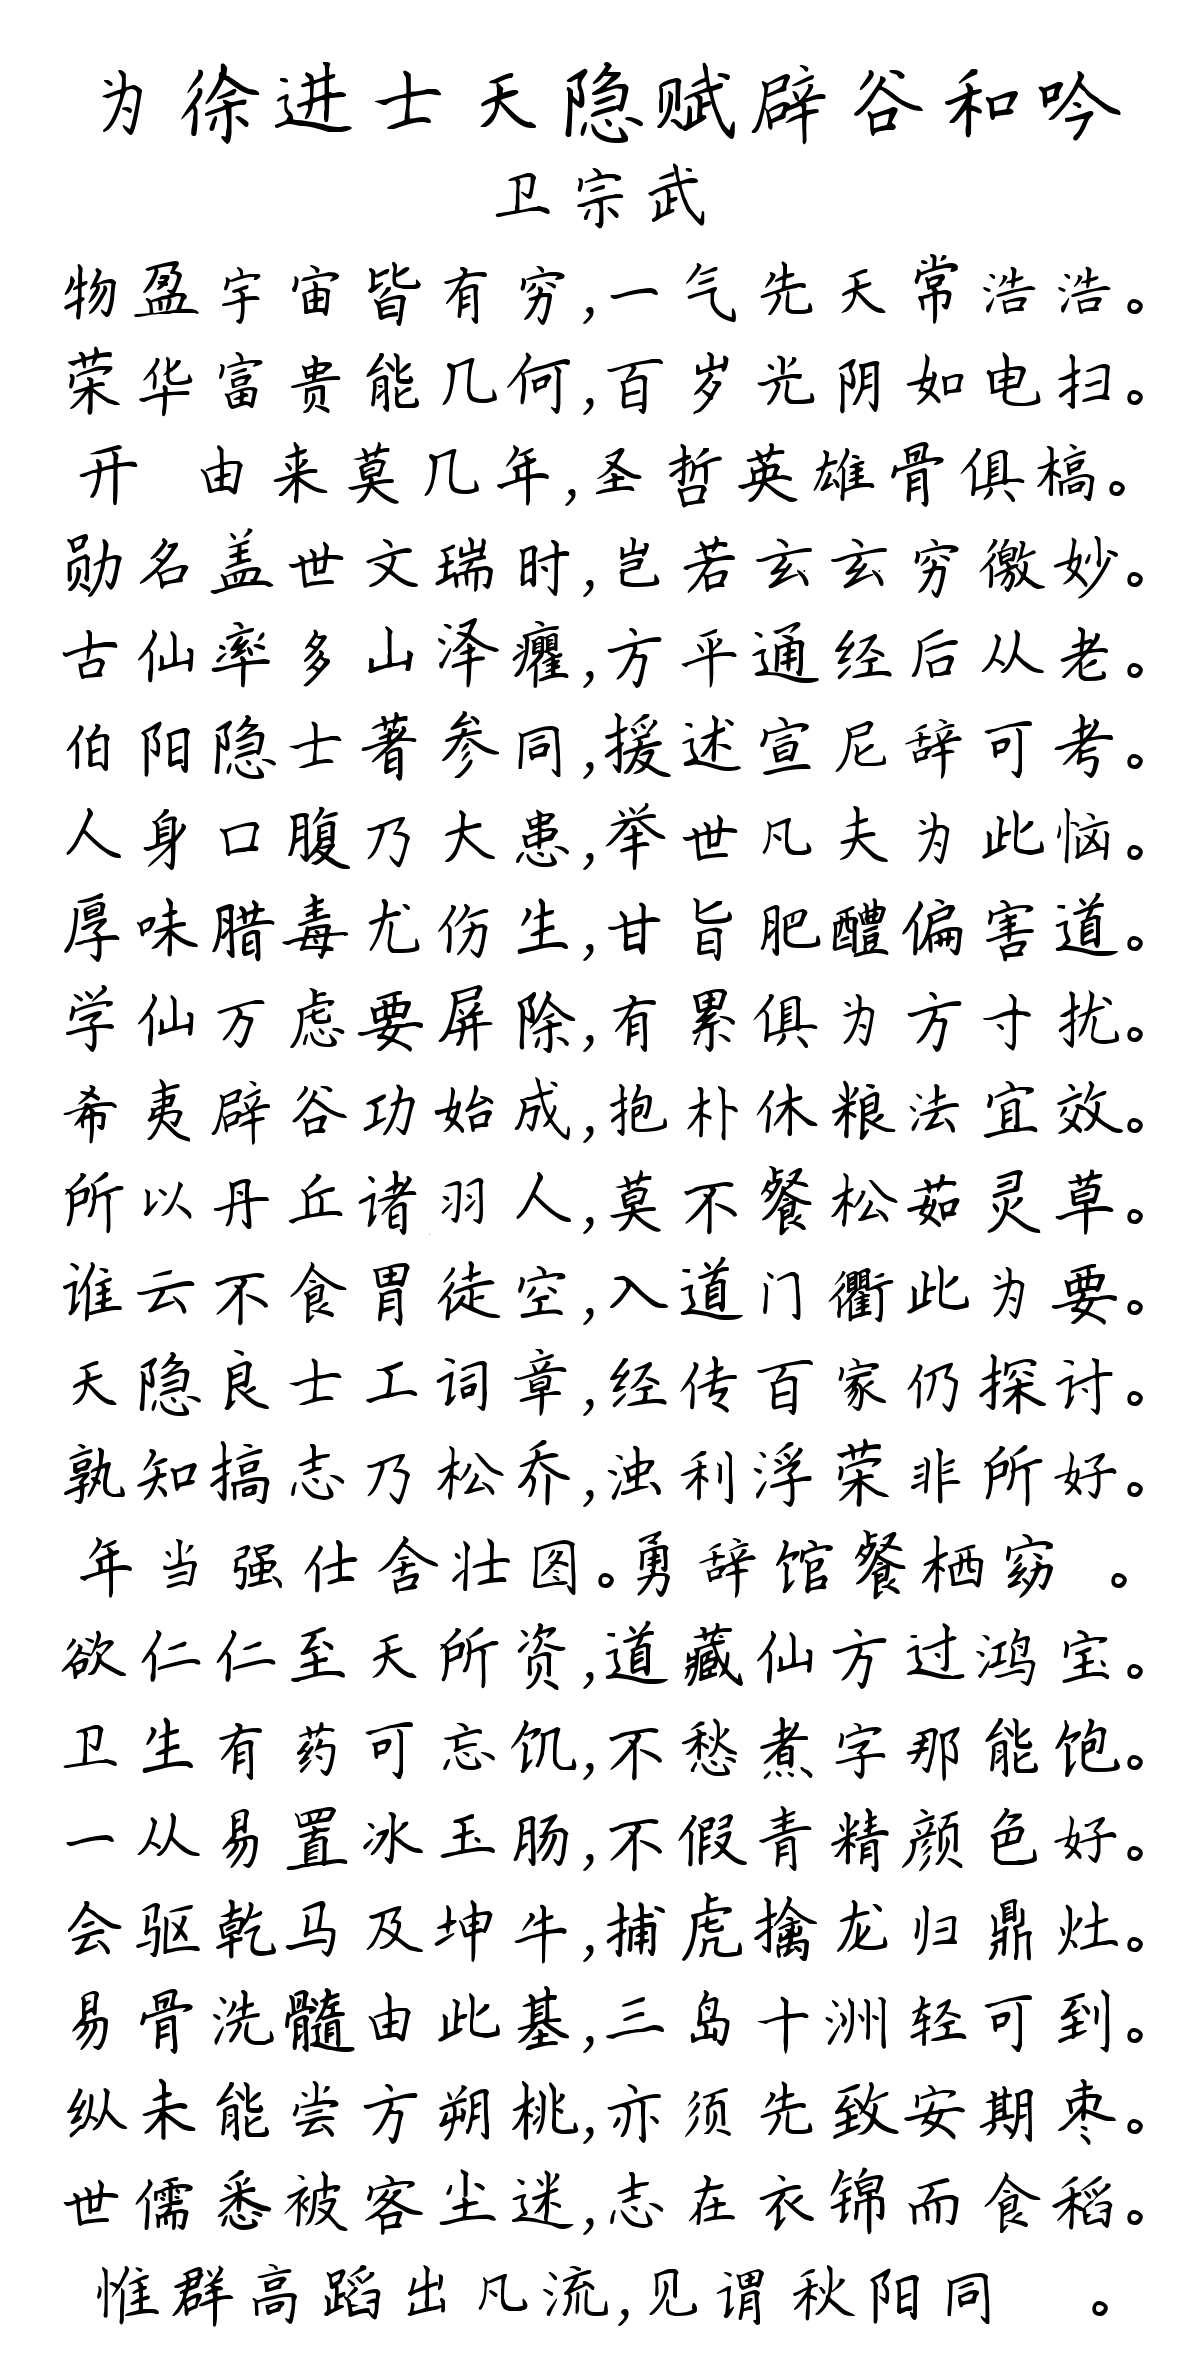 为徐进士天隐赋辟谷和吟
卫宗武
物盈宇宙皆有穷,一气先天常浩浩。
荣华富贵能几何,百岁光阴如电扫。
开 由来莫几年,圣哲英雄骨俱槁。
勋名盖世文瑞时,岂若玄玄穷徼妙。
古仙率多山泽癯,方平通经后从老。
伯阳隐士著参同,援述宣尼辞可考。
人身口腹乃大患,举世凡夫为此恼。
厚味腊毒尤伤生,甘旨肥醴偏害道。
学仙万虑要屏除,有累俱为方寸扰。
希夷辟谷功始成,抱朴休粮法宜效。
所以丹丘诸羽人,莫不餐松茹灵草。
谁云不食胃徒空,入道门衢此为要。
天隐良士工词章,经传百家仍探讨。
孰知搞志乃松乔,浊利浮荣非所好。
年当强仕舍壮图。勇辞馆餐栖窈 。
欲仁仁至天所资,道藏仙方过鸿宝。
卫生有药可忘饥,不愁煮字那能饱。
一从易置冰玉肠,不假青精颜色好。
会驱乾马及坤牛,捕虎擒龙归鼎灶。
易骨洗髓由此基,三岛十洲轻可到。
纵未能尝方朔桃,亦须先致安期枣。
世儒悉被客尘迷,志在衣锦而食稻。
惟群高蹈出凡流,见谓秋阳同 。